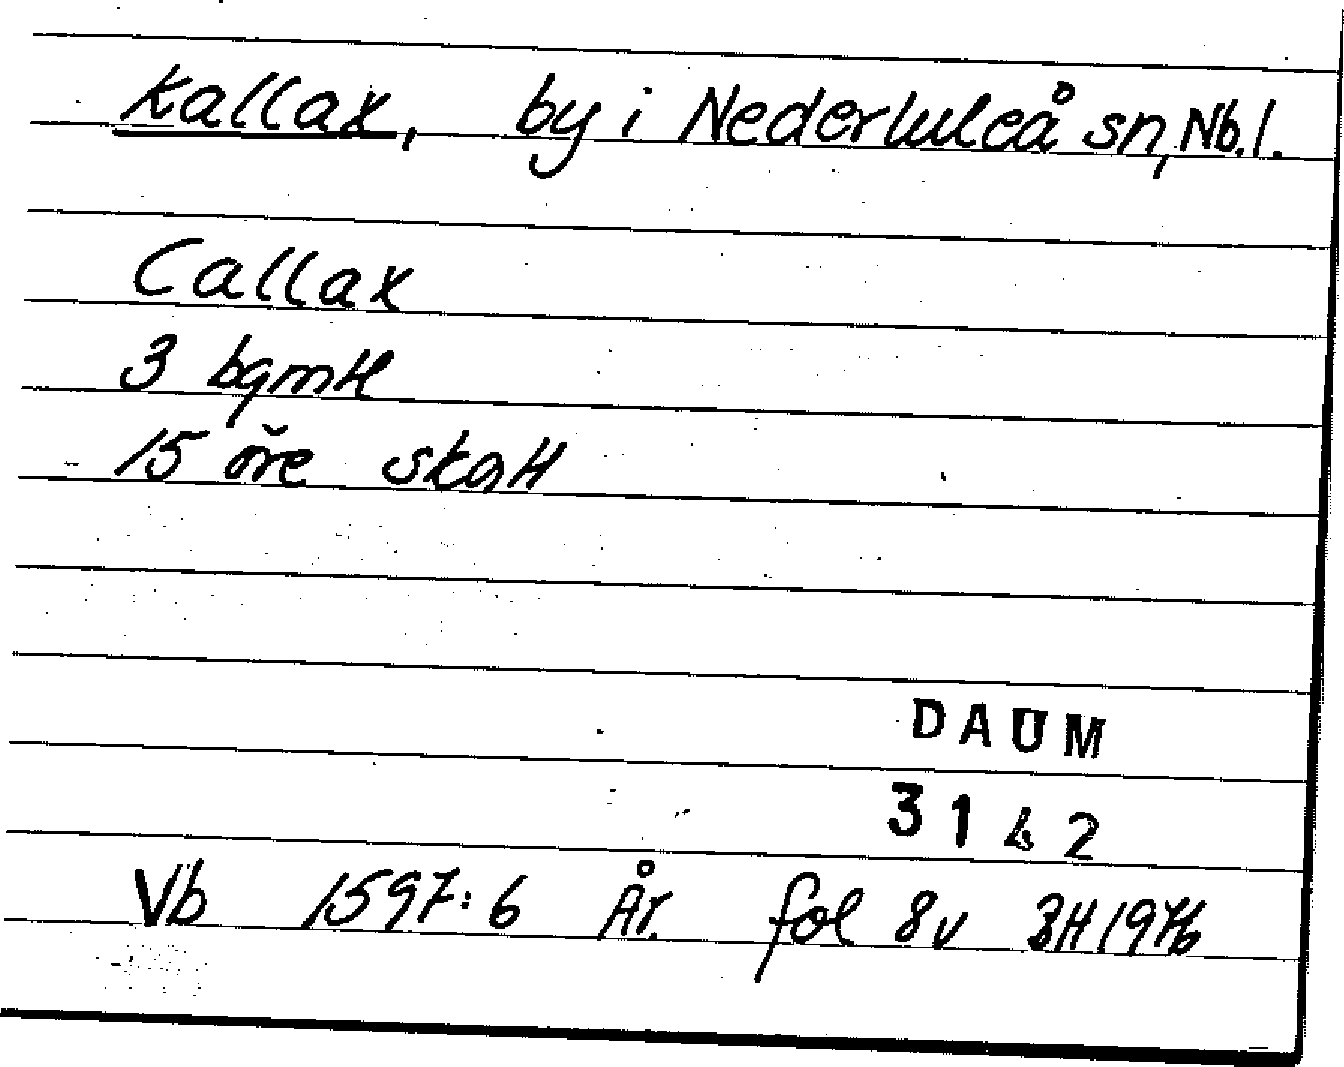 Kallax, by i Nederluleå sn, Nb.l.
Callax
3 bgmH
15 öre skgH
DAUM
3142
Vb 1597:6 År. fol 8v BH 1976